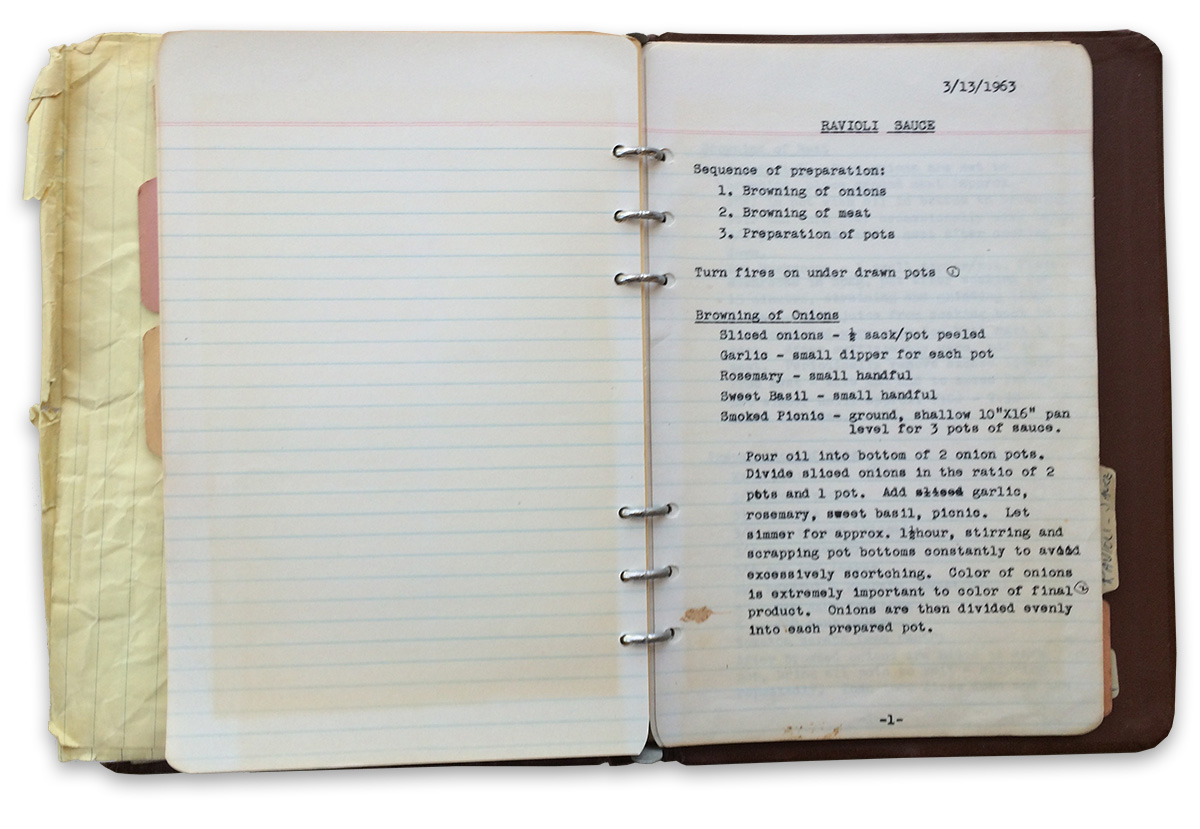 3/13/1963
RAVIOLI SAUCE
Sequence of preparation:
1. Browning of onions
2. Browning of meat
3. Preparation of pots
Turn fires on under drawn pots ①
Browning of Onions
Sliced onions - ½ sack/pot peeled
Garlic - small dipper for each pot
Rosemary - small handful
Sweet Basil - small handful
Smoked Picnic - ground, shallow 10"X16" pan
level for 3 pots of sauce.
Pour oil into bottom of 2 onion pots.
Divide sliced onions in the ratio of 2
pots and 1 pot. Add sliced garlic,
rosemary, sweet basil, picnic. Let
simmer for approx. 1½hour, stirring and
scrapping pot bottoms constantly to avoid
excessively scortching. Color of onions
is extremely important to color of final ②
product. Onions are then divided evenly
into each prepared pot.
-1-
RAVIOLI - SAUCE